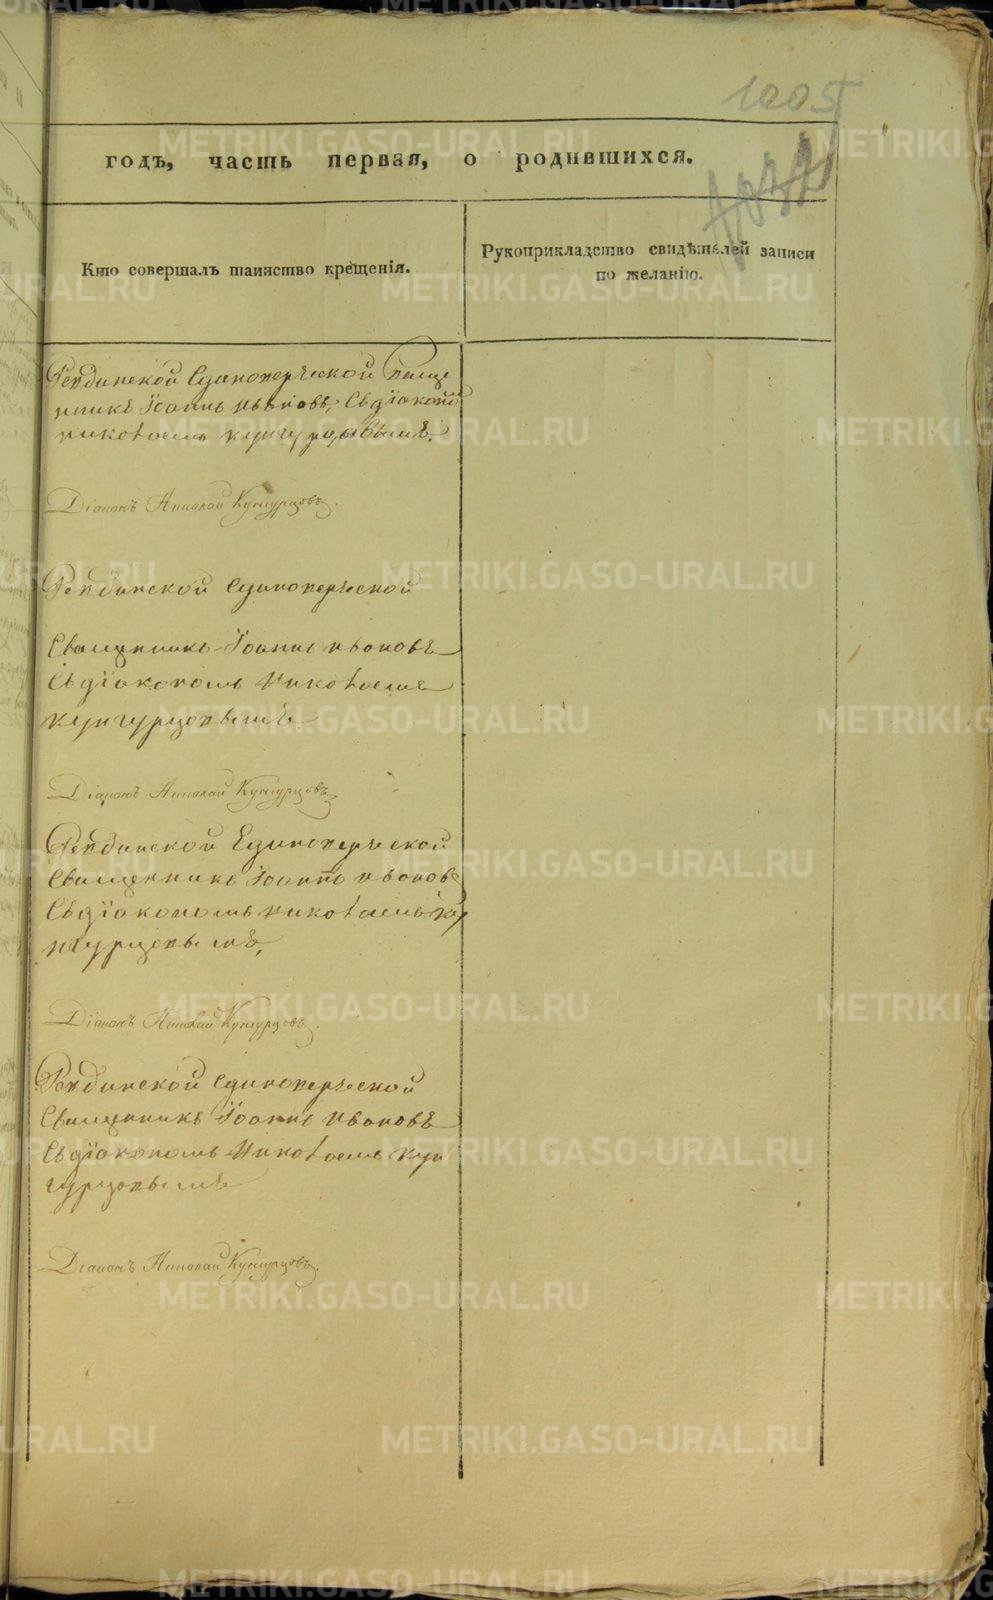 1005
годъ, часть первая, о родившихся.
Кто совершалъ таинство крещенія.
Рукоприкладство свидѣтелей записи
по желанію.
Ревдинской Единоверческой Свяще
нникъ Іоаннъ Ивановъ, Съдіакономъ
николаемъ кунгурцовымъ.
Діаконъ Николай Кунгурцовъ.
Ревдинской Единоверческой
Священникъ Іоаннъ Ивановъ
Съдіакономъ Николаемъ
кунгурцовымъ
Діаконъ Николай Кунгурцовъ
Ревдинской Единоверческой
Священникъ Іоаннъ Ивановъ
Съдіакономъ николаемъ Ку
нгурцовымъ,
Діаконъ Николай Кунгурцовъ.
Ревдинской Единоверческой
Священникъ Іоаннъ Ивановъ
Съдіакономъ Николаемъ Кун
гурцовымъ
Діаконъ Николай Кунгурцовъ.
METRIKI.GASO-URAL.RU